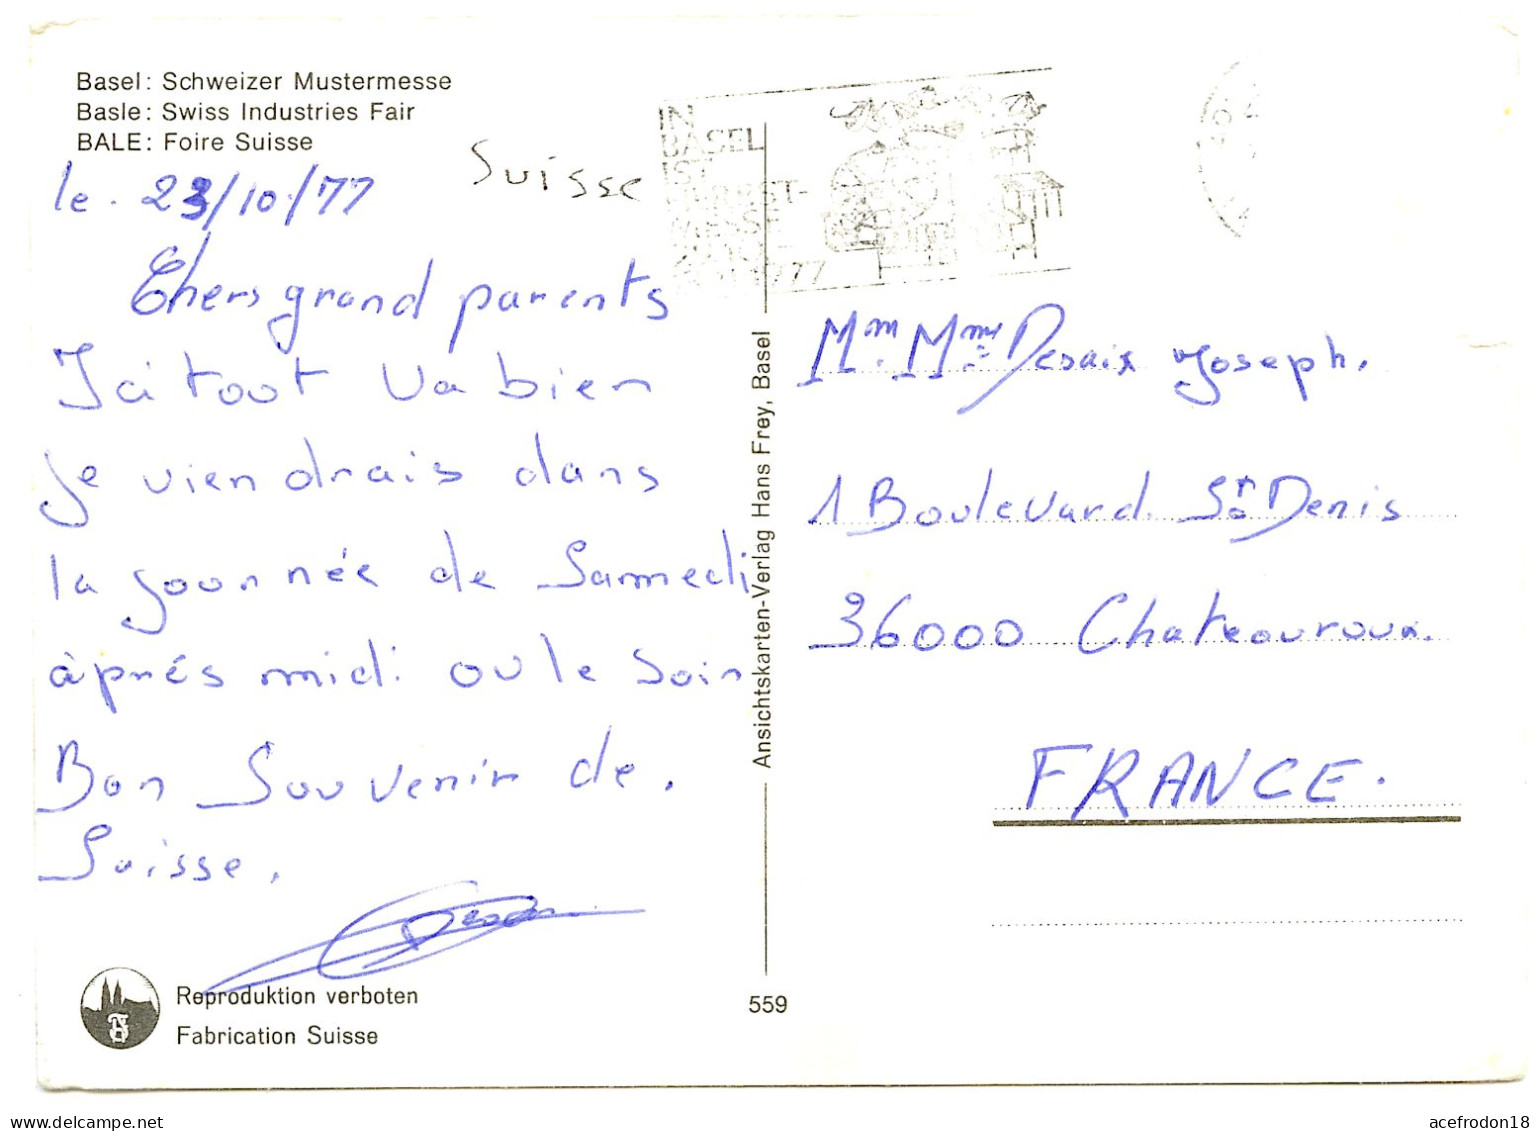 Basel: Schweizer Mustermesse
Basle: Swiss Industries Fair
BALE: Foire Suisse
Suisse
le. 23/10/77
Chers grand parents
Ici tout va bien
je viendrais dans
la journée de Samedi
àprés midi ou le soir
Bon Souvenir de.
Suisse.
Reproduktion verboten
Fabrication Suisse
IN
BASEL
IST
HERBST-
MESSE
1977
Ansichtskarten-Verlag Hans Frey, Basel
559
Mm. Mme Desaix Joseph.
1 Boulevard St Denis
36000 Chateauroux.
FRANCE.
acefrodon18